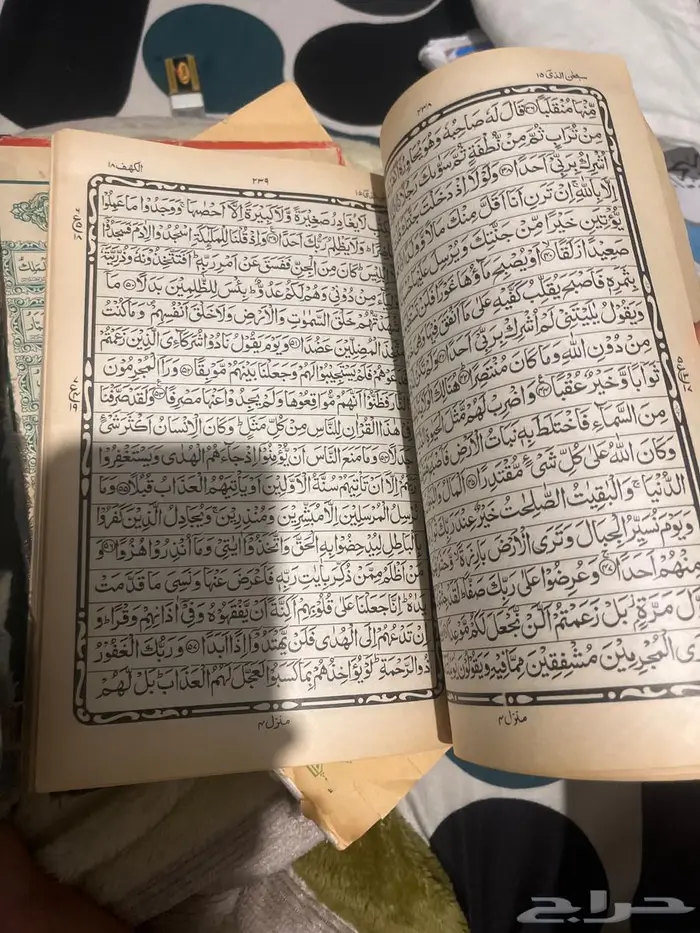 سبحٰن الذی ١٥
٢٣٨
مِّنْهَا مُنْقَلَبًا ﴿٣٦﴾ قَالَ لَهٗ صَاحِبُهٗ وَهُوَ يُحَاوِرُهٗۤ
مِنْ تُرَابٍ ثُمَّ مِنْ نُّطْفَةٍ ثُمَّ سَوّٰىكَ رَجُلًا
اُشْرِكُ بِرَبِّيْۤ اَحَدًا ﴿٣٨﴾ وَلَوْلَاۤ اِذْ دَخَلْتَ جَنَّتَكَ
اِلَّا بِاللّٰهِ ۚ اِنْ تَرَنِ اَنَا اَقَلَّ مِنْكَ مَالًا وَّوَلَدًا
يُّؤْتِيَنِ خَيْرًا مِّنْ جَنَّتِكَ وَيُرْسِلَ عَلَيْهَا
صَعِيْدًا زَلَقًا ﴿٤٠﴾ اَوْ يُصْبِحَ مَآؤُهَا غَوْرًا فَلَنْ
بِثَمَرِهٖ فَاَصْبَحَ يُقَلِّبُ كَفَّيْهِ عَلٰى مَاۤ اَنْفَقَ فِيْهَا وَهِيَ
وَيَقُوْلُ يٰلَيْتَنِيْ لَمْ اُشْرِكْ بِرَبِّيْۤ اَحَدًا ﴿٤٢﴾ وَلَمْ
مِنْ دُوْنِ اللّٰهِ وَمَا كَانَ مُنْتَصِرًا ﴿٤٣﴾ هُنَالِكَ
ثَوَابًا وَّخَيْرٌ عُقْبًا ﴿٤٤﴾ وَاضْرِبْ لَهُمْ مَّثَلَ الْحَيٰوةِ
مِنَ السَّمَآءِ فَاخْتَلَطَ بِهٖ نَبَاتُ الْاَرْضِ فَاَصْبَحَ
وَكَانَ اللّٰهُ عَلٰى كُلِّ شَيْءٍ مُّقْتَدِرًا ﴿٤٥﴾ اَلْمَالُ
الدُّنْيَا ۚ وَالْبٰقِيٰتُ الصّٰلِحٰتُ خَيْرٌ عِنْدَ رَبِّكَ
وَيَوْمَ نُسَيِّرُ الْجِبَالَ وَتَرَى الْاَرْضَ بَارِزَةً ۙ
مِنْهُمْ اَحَدًا ﴿٤٧﴾ وَعُرِضُوْا عَلٰى رَبِّكَ صَفًّا ؕ لَقَدْ
مَرَّةٍۭ ؗ بَلْ زَعَمْتُمْ اَلَّنْ نَّجْعَلَ لَكُمْ مَّوْعِدًا
الْمُجْرِمِيْنَ مُشْفِقِيْنَ مِمَّا فِيْهِ وَيَقُوْلُوْنَ
منزل ٤
الكهف ١٨
٢٣٩
لَا يُغَادِرُ صَغِيْرَةً وَّلَا كَبِيْرَةً اِلَّاۤ اَحْصٰىهَا ۚ وَوَجَدُوْا مَا عَمِلُوْا
وَلَا يَظْلِمُ رَبُّكَ اَحَدًا ﴿٤٩﴾ وَاِذْ قُلْنَا لِلْمَلٰٓئِكَةِ اسْجُدُوْا لِاٰدَمَ فَسَجَدُوْۤا
كَانَ مِنَ الْجِنِّ فَفَسَقَ عَنْ اَمْرِ رَبِّهٖ ؕ اَفَتَتَّخِذُوْنَهٗ وَذُرِّيَّتَهٗۤ
مِنْ دُوْنِيْ وَهُمْ لَكُمْ عَدُوٌّ ؕ بِئْسَ لِلظّٰلِمِيْنَ بَدَلًا ﴿٥٠﴾ مَاۤ
خَلْقَ السَّمٰوٰتِ وَالْاَرْضِ وَلَا خَلْقَ اَنْفُسِهِمْ ۪ وَمَا كُنْتُ
الْمُضِلِّيْنَ عَضُدًا ﴿٥١﴾ وَيَوْمَ يَقُوْلُ نَادُوْا شُرَكَآءِيَ الَّذِيْنَ زَعَمْتُمْ
فَلَمْ يَسْتَجِيْبُوْا لَهُمْ وَجَعَلْنَا بَيْنَهُمْ مَّوْبِقًا ﴿٥٢﴾ وَرَاَ الْمُجْرِمُوْنَ
فَظَنُّوْۤا اَنَّهُمْ مُّوَاقِعُوْهَا وَلَمْ يَجِدُوْا عَنْهَا مَصْرِفًا ﴿٥٣﴾ وَلَقَدْ صَرَّفْنَا
هٰذَا الْقُرْاٰنِ لِلنَّاسِ مِنْ كُلِّ مَثَلٍ ؕ وَكَانَ الْاِنْسَانُ اَكْثَرَ شَيْءٍ
جَدَلًا ﴿٥٤﴾ وَمَا مَنَعَ النَّاسَ اَنْ يُّؤْمِنُوْۤا اِذْ جَآءَهُمُ الْهُدٰى وَيَسْتَغْفِرُوْا
اِلَّاۤ اَنْ تَاْتِيَهُمْ سُنَّةُ الْاَوَّلِيْنَ اَوْ يَاْتِيَهُمُ الْعَذَابُ قُبُلًا ﴿٥٥﴾ وَمَا
نُرْسِلُ الْمُرْسَلِيْنَ اِلَّا مُبَشِّرِيْنَ وَمُنْذِرِيْنَ ۚ وَيُجَادِلُ الَّذِيْنَ كَفَرُوْا
بِالْبَاطِلِ لِيُدْحِضُوْا بِهِ الْحَقَّ وَاتَّخَذُوْۤا اٰيٰتِيْ وَمَاۤ اُنْذِرُوْا هُزُوًا ﴿٥٦﴾ وَ
مَنْ اَظْلَمُ مِمَّنْ ذُكِّرَ بِاٰيٰتِ رَبِّهٖ فَاَعْرَضَ عَنْهَا وَنَسِيَ مَا قَدَّمَتْ
يَدٰهُ ؕ اِنَّا جَعَلْنَا عَلٰى قُلُوْبِهِمْ اَكِنَّةً اَنْ يَّفْقَهُوْهُ وَفِيْۤ اٰذَانِهِمْ وَقْرًا ؕ وَ
اِنْ تَدْعُهُمْ اِلَى الْهُدٰى فَلَنْ يَّهْتَدُوْۤا اِذًا اَبَدًا ﴿٥٧﴾ وَرَبُّكَ الْغَفُوْرُ
ذُو الرَّحْمَةِ ؕ لَوْ يُؤَاخِذُهُمْ بِمَا كَسَبُوْا لَعَجَّلَ لَهُمُ الْعَذَابَ ؕ بَلْ لَّهُمْ
منزل ٤
حراج